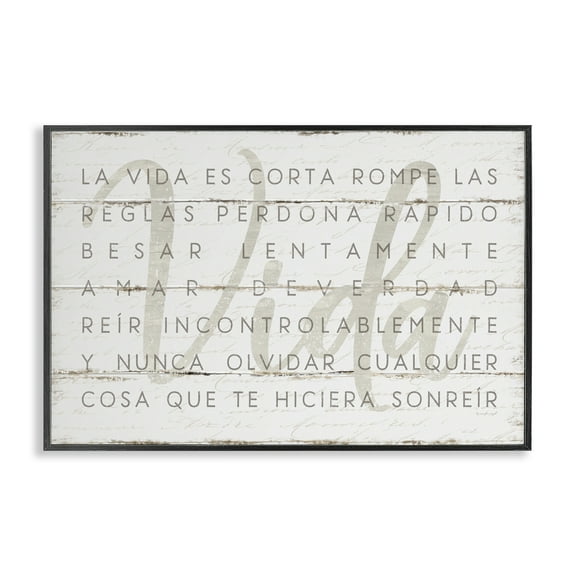 LA VIDA ES CORTA ROMPE LAS
REGLAS PERDONA RÁPIDO
BESAR LENTAMENTE
AMAR DE VERDAD
REÍR INCONTROLABLEMENTE
Y NUNCA OLVIDAR CUALQUIER
COSA QUE TE HICIERA SONREÍR
Vida